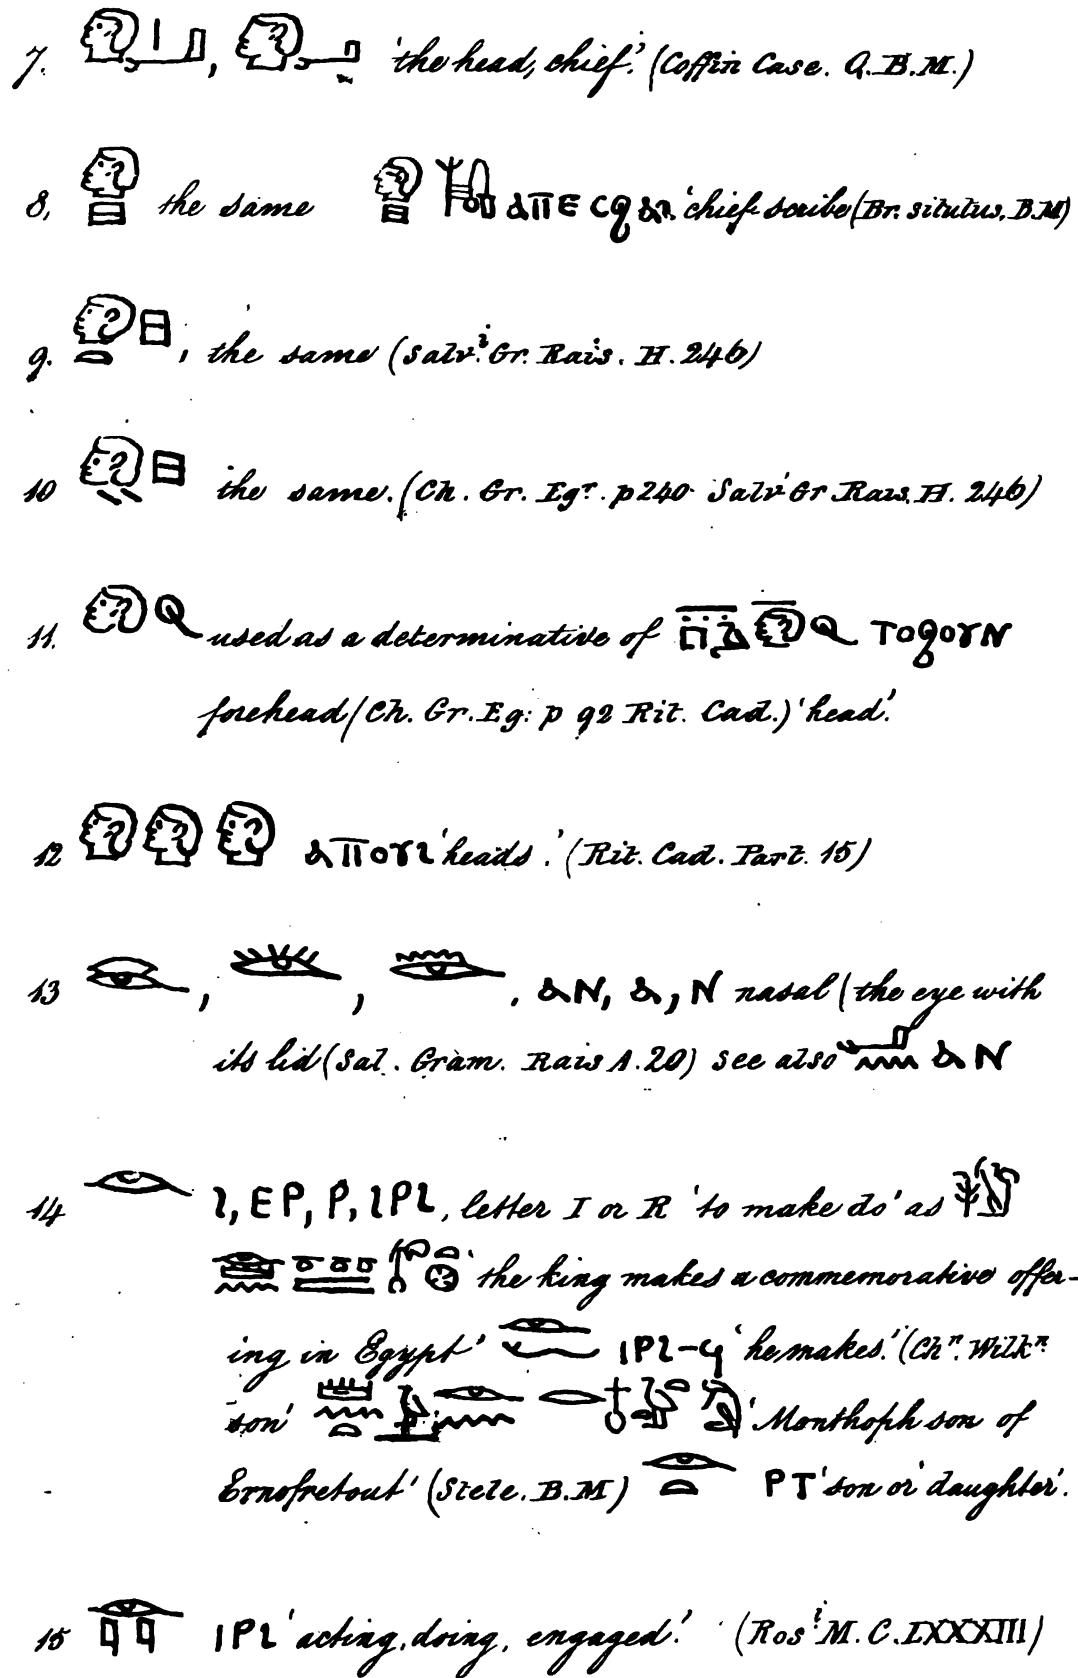 7. , 'the head, chief.' (Coffin Case. Q.B.M.)
8, the same ⲁⲡⲉ ⲥϧⲁⲓ 'chief scribe (Br. situtus, B.M)
9. , the same (Salv.i Gr. Rais. H. 246)
10 the same. (Ch. Gr. Egr. p240 Salv Gr Rais. H. 246)
11. used as a determinative of ⲧⲟϩⲟⲩⲛ
forehead (Ch. Gr. Eg: p 92 Rit. Cad.) 'head'.
12 ⲁⲡⲟⲩⲓ 'heads.' (Rit. Cad. Part. 15)
13 , , , ⲁⲛ, ⲁ, ⲛ nasal (the eye with
its lid (Sal. Gram. Rais A.20) See also ⲁⲛ
14 ⲓ, ⲉⲣ, ⲣ, ⲓⲣⲓ, letter I or R 'to make do' as
'the king makes a commemorative offer-
ing in Egypt' ⲓⲣⲓ-ϥ 'he makes.' (Chn. Wilkn.
son' 'Monthoph son of
Ernofretout' (Stele. B.M) ⲣⲧ 'son or daughter'.
15 ⲓⲣⲓ 'acting, doing, engaged.' (Rosi M. C. LXXXIII)